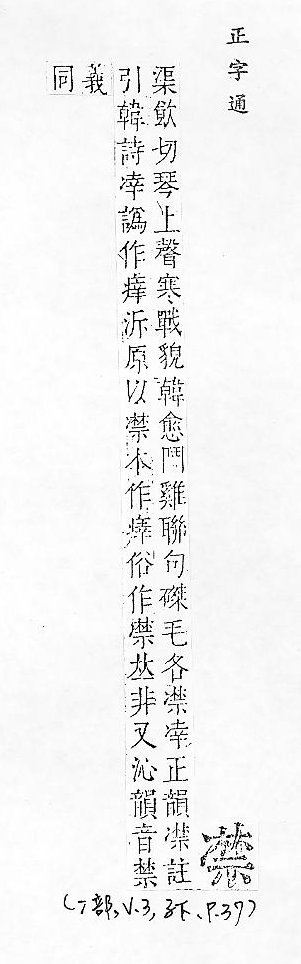 正字通
凚
渠飲切琴上聲寒戰貌韓愈鬥雞聯句磔毛各凚正韻凚註
引韓詩譌作泝原以凚本作俗作𠀤非又沁韻音禁
義
同
(冫部, V.3, 子下, P.37)